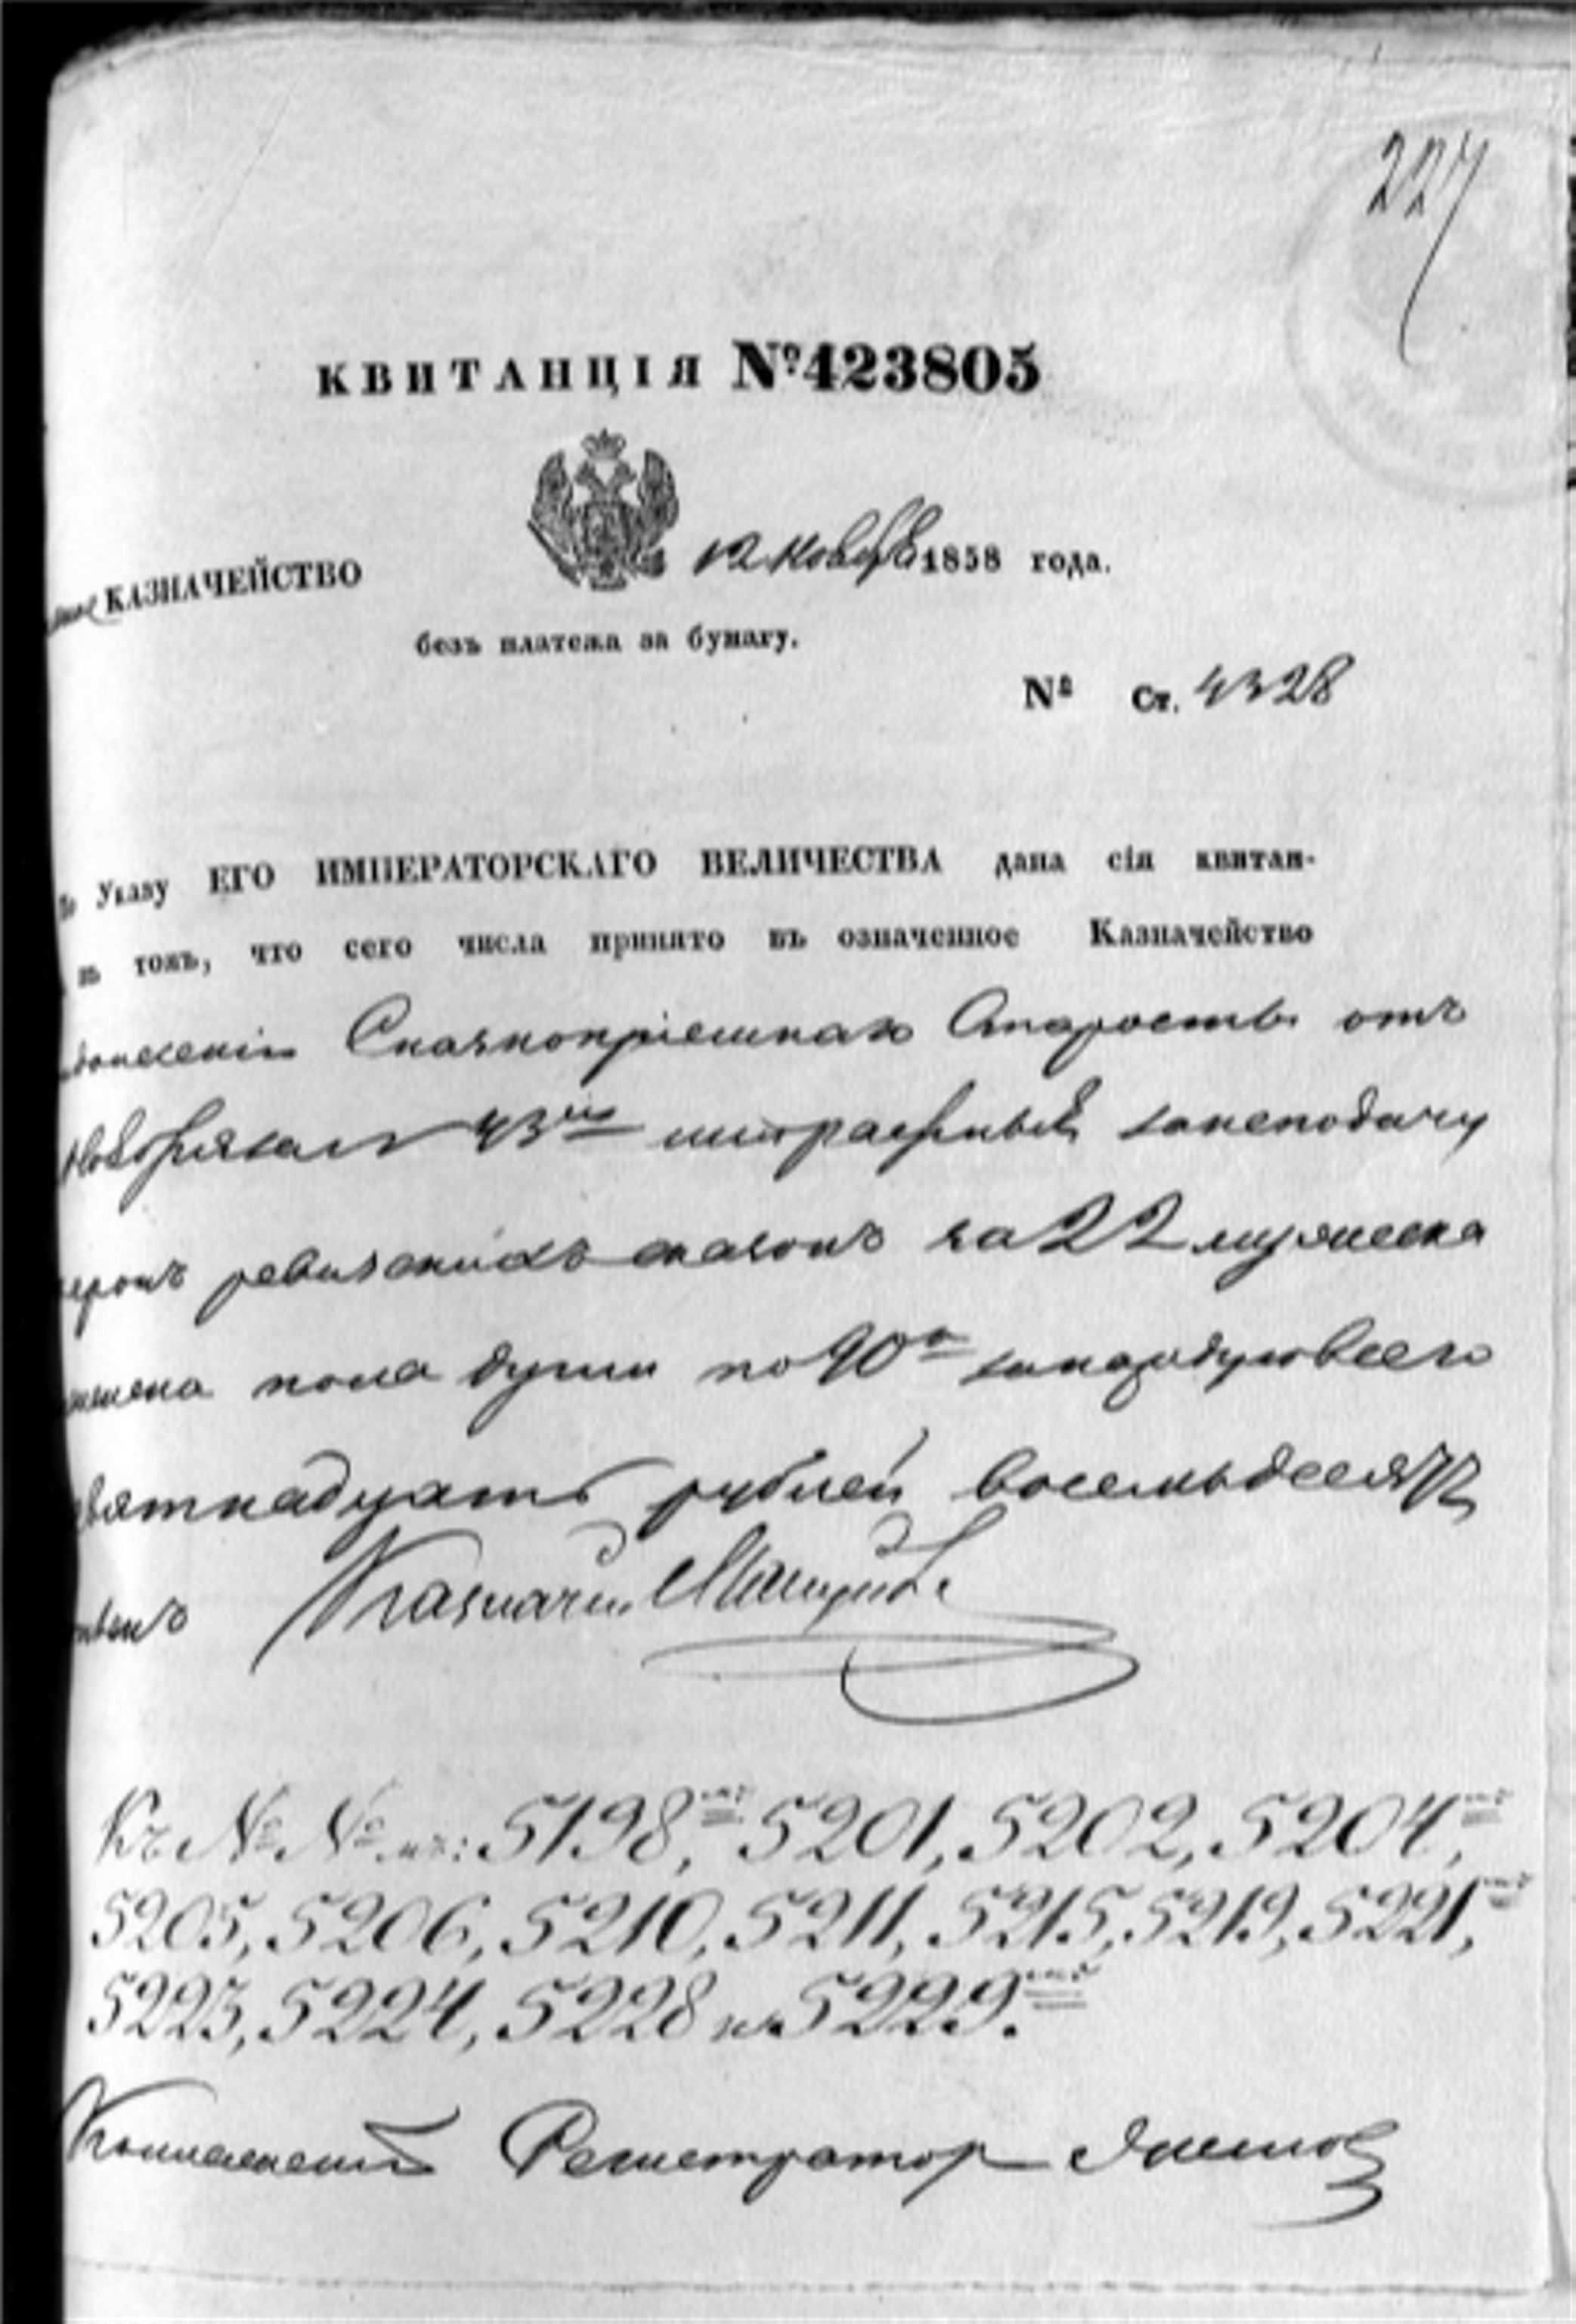 227
КВИТАНЦІЯ №423805
КАЗНАЧЕЙСТВО
12 Ноября 1858 года.
безъ платежа за бумагу.
№ Ст. 4328
По Указу ЕГО ИМПЕРАТОРСКАГО ВЕЛИЧЕСТВА дана сія квитан-
въ томъ, что сего числа принято въ означенное Казначейство
донесеніи Старость отъ
Ноября за № 43 штрафныхъ за неподачу
ревизскихъ сказокъ за 22 мужеска
пола души по 90 к всего
вятнадцать рублей восемьдесятъ
Казначей
Къ №№: 5198, 5201, 5202, 5204,
5205, 5206, 5210, 5211, 5215, 5219, 5221,
5223, 5224, 5228 и 5229.
Коллежскій Регистраторъ